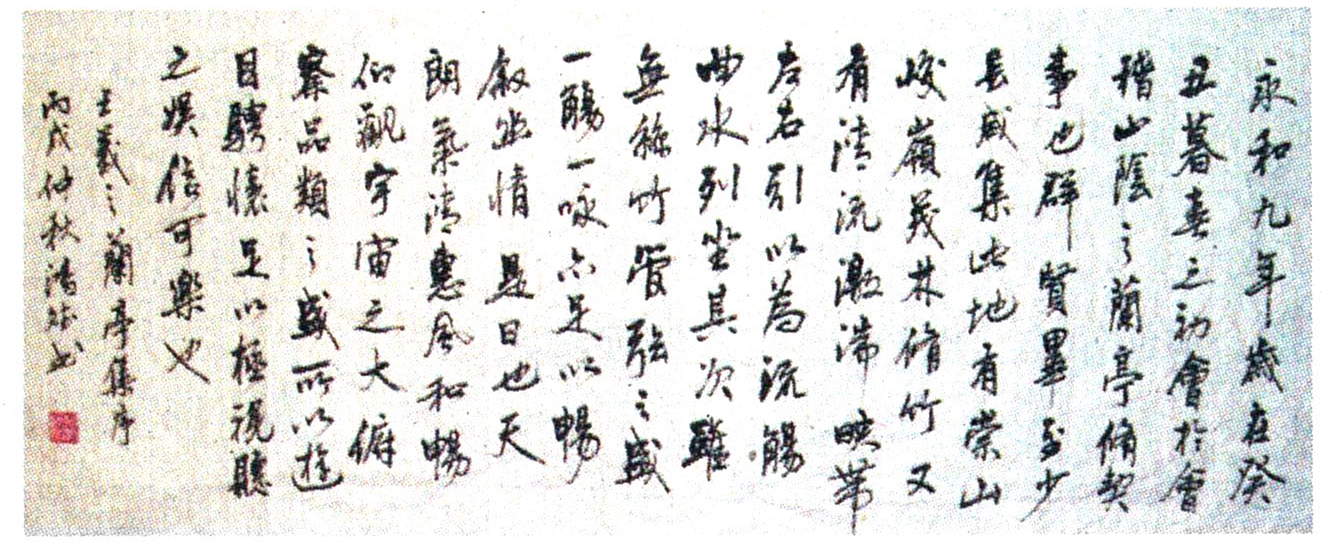 永和九年歲在癸
丑暮春之初會於會
稽山陰之蘭亭脩契
事也群賢畢至少
長咸集此地有崇山
峻嶺茂林脩竹又
有清流激湍映帶
左右引以為流觴
曲水列坐其次雖
無絲竹管弦之盛
一觴一咏亦足以暢
敘幽情是日也天
朗氣清惠風和暢
仰觀宇宙之大俯
察品類之盛所以遊
目騁懷足以極視聽
之娛信可樂也
王羲之蘭亭集序
丙戌仲秋書